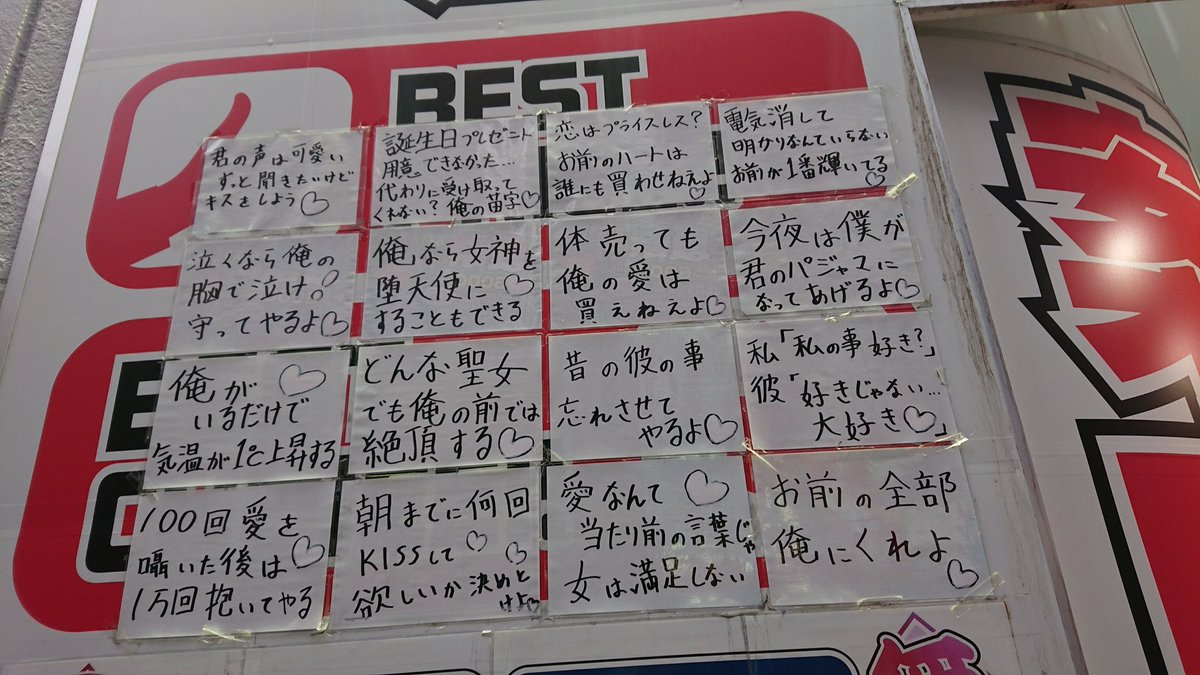 BEST
君の声は可愛い
ずっと聞きたいけど
キスをしよう♡
誕生日プレゼント
用意できなかった…
代わりに受け取って
くれない?俺の苗字♡
恋はプライスレス?
お前のハートは
誰にも買わせねえよ♡
電気消して
明かりなんていらない
お前が1番輝いてる♡
泣くなら俺の
胸で泣け!
守ってやるよ♡
俺なら女神を
堕天使に♡
することもできる
体売っても
俺の愛は
買えねえよ♡
今夜は僕が
君のパジャマに
なってあげるよ♡
俺が♡
いるだけで
気温が1℃上昇する
どんな聖女
でも俺の前では
絶頂する♡
昔の彼の事
忘れさせて
やるよ♡
私「私の事好き?」
彼「好きじゃない…
大好き♡」
100回愛を
囁いた後は♡
1万回抱いてやる
朝までに何回
KISSして♡
欲しいか決めと
けよ♡
愛なんて♡
当たり前の言葉じゃ
女は満足しない
お前の全部
俺にくれよ♡
無